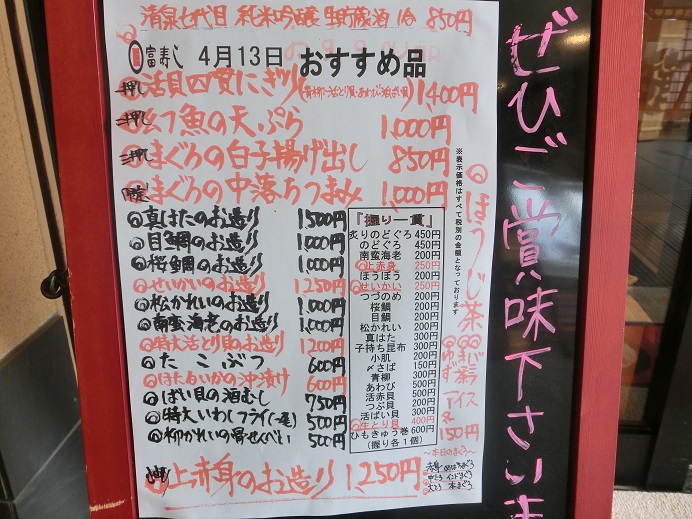 清泉七代目 純米吟醸 生貯蔵酒 1合 850円
富寿し 4月13日 おすすめ品
一押し 活貝四貫にぎり 1,400円
二押し 幻魚の天ぷら 1,000円
三押し まぐろの白子揚げ出し 850円
まぐろの中落ちつまみ 1,000円
◎真はたのお造り 1,500円
◎目鯛のお造り 1,000円
◎桜鯛のお造り 1,000円
◎せいかいのお造り 1,250円
◎松かれいのお造り 1,000円
◎南蛮海老のお造り 1,000円
◎特大活とり貝のお造り 1200円
◎たこぶつ 600円
◎ほたるいかの沖漬け 600円
◎ばい貝の酒むし 750円
◎特大いわしフライ(一尾) 500円
◎柳かれいの骨せんべい 500円
上赤身のお造り 1,250円
『握り一貫』
炙りのどぐろ 450円
のどぐろ 450円
南蛮海老 200円
◎上赤身 250円
ほうぼう 200円
◎せいかい 250円
つづのめ 200円
桜鯛 200円
目鯛 200円
松かれい 200円
真はた 300円
子持ち昆布 200円
小肌 200円
〆さば 150円
青柳 300円
あわび 500円
活赤貝 500円
つぶ貝 200円
活ばい貝 300円
◎生とり貝 400円
ひもきゅう巻 600円
(握り各1個)
※表示価格はすべて税別の金額となっております
◎ほうじ茶
◎ゆず
アイス
各150円
~本日のまぐろ~
ぜひご賞味下さいま